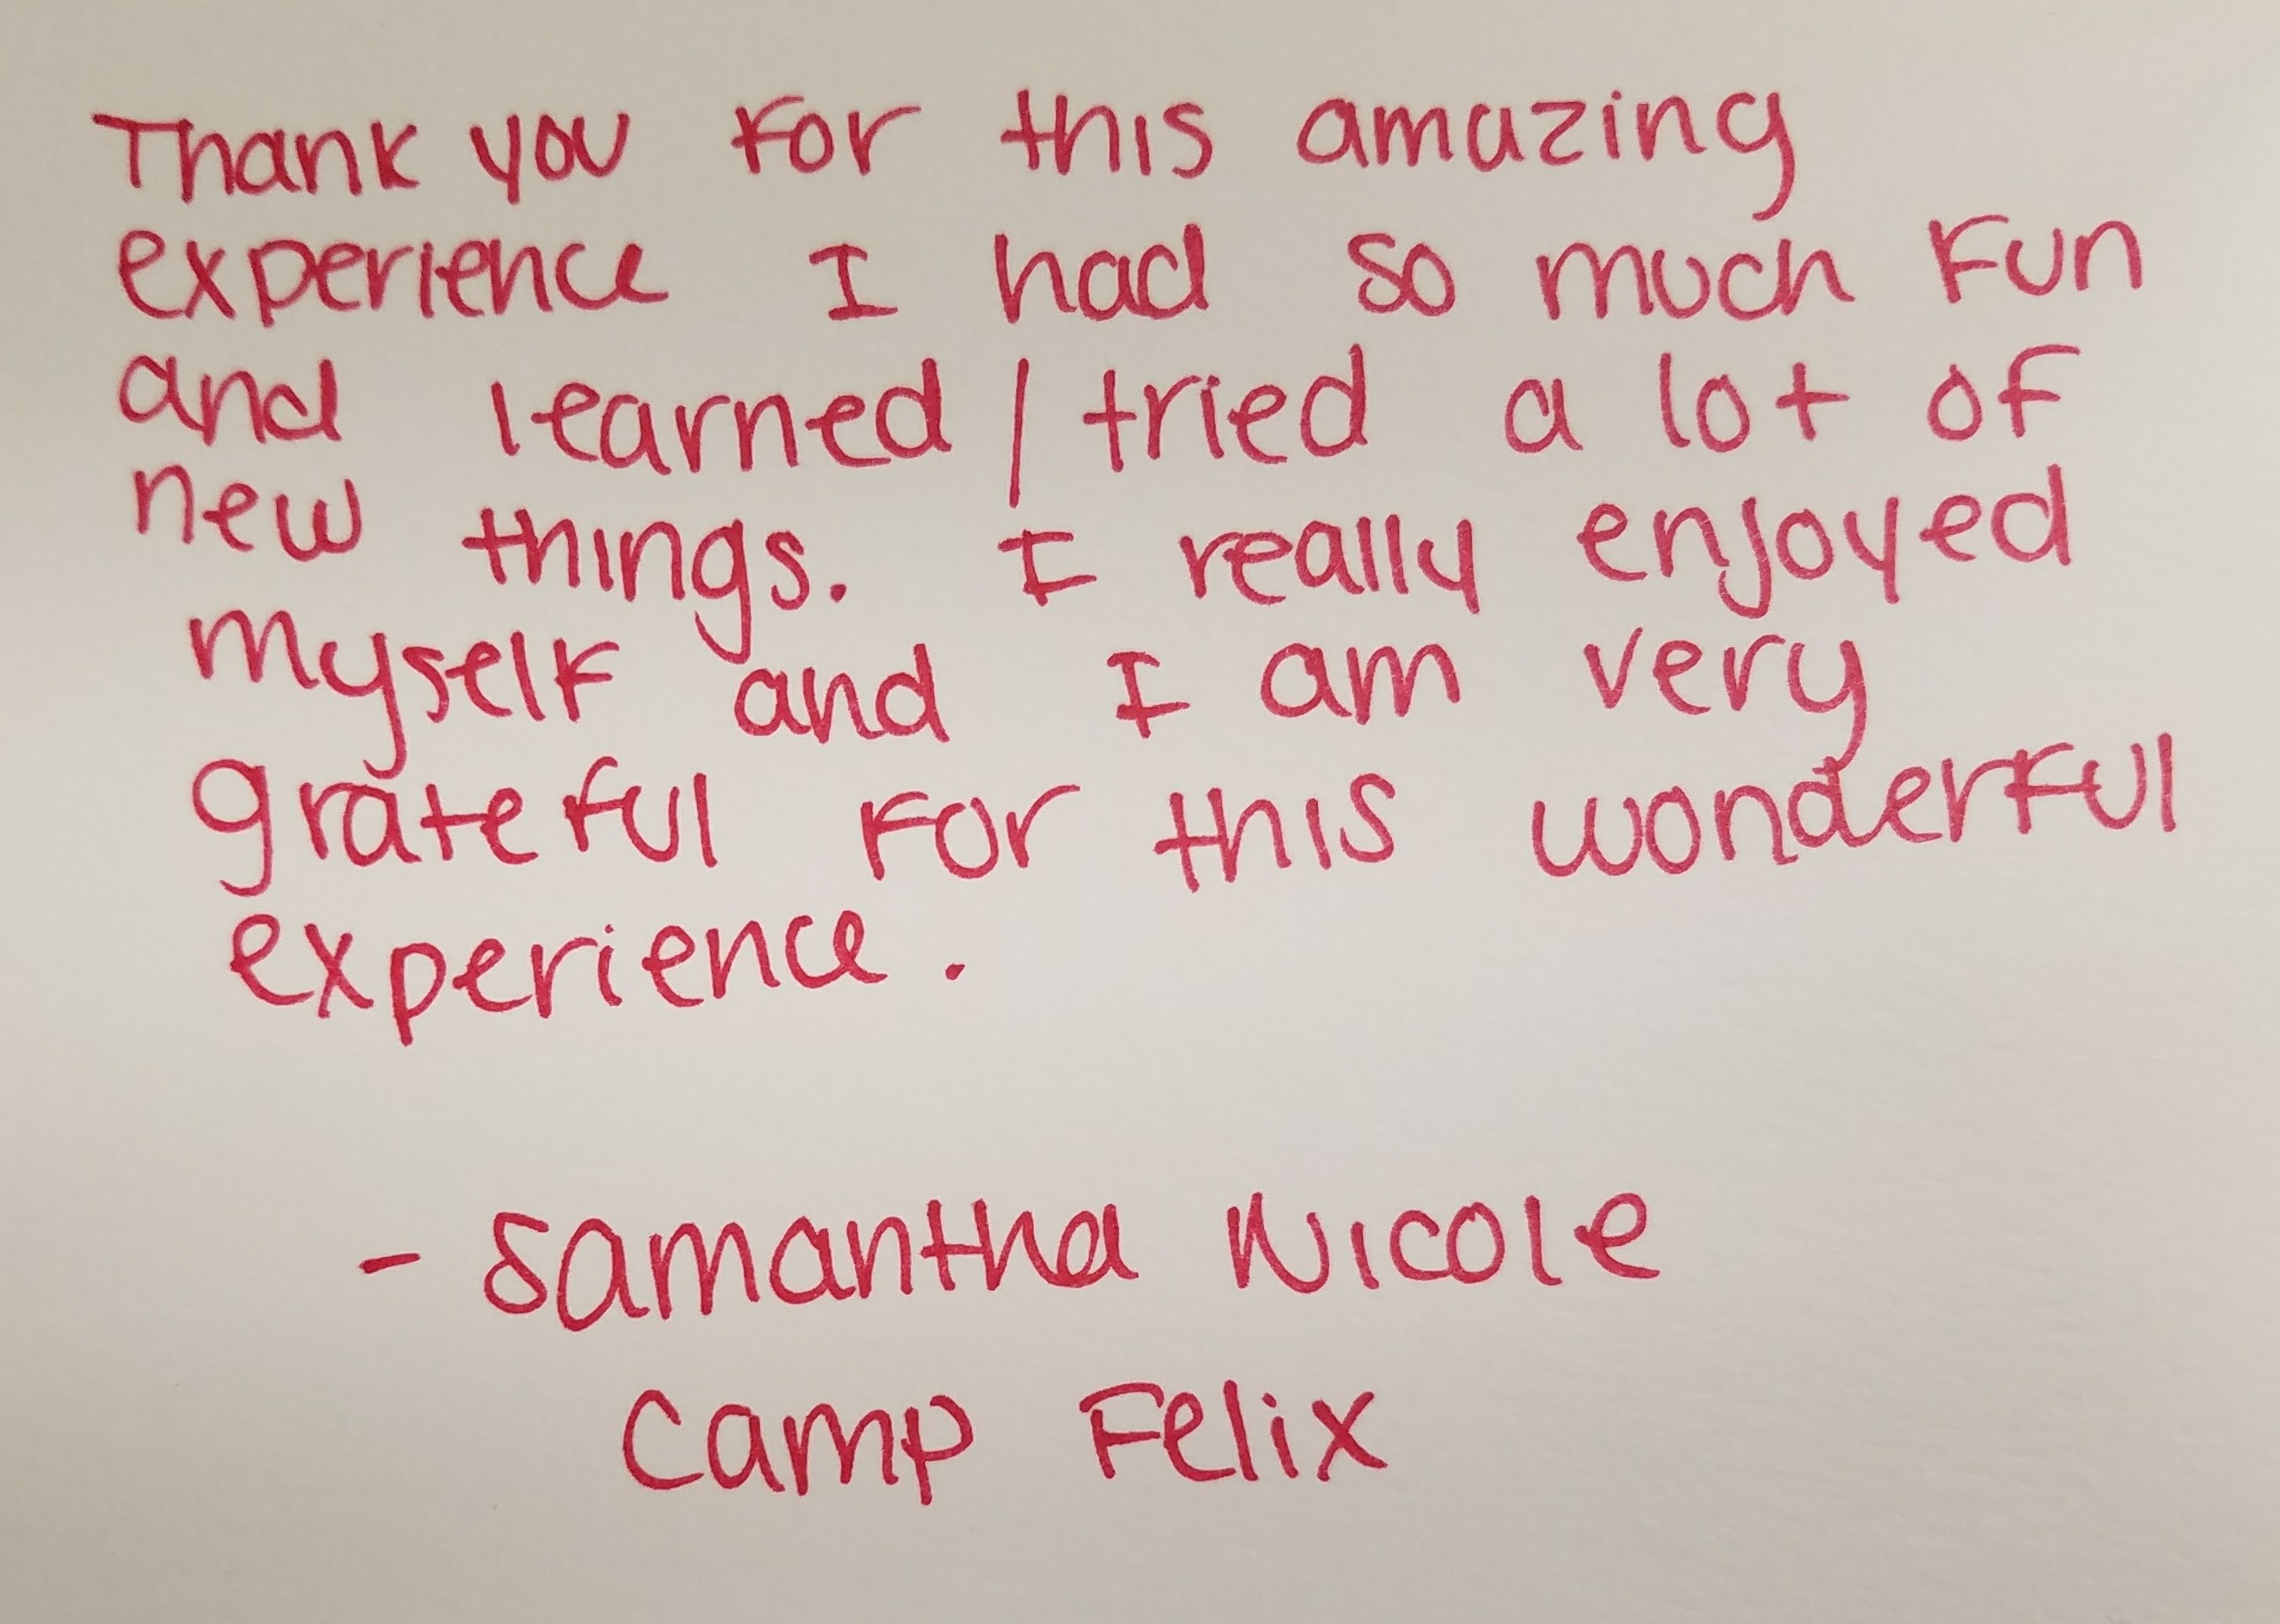 Thank you for this amazing
experience I had so much fun
and learned / tried a lot of
new things. I really enjoyed
myself and I am very
grateful for this wonderful
experience.
- Samantha Nicole
Camp Felix